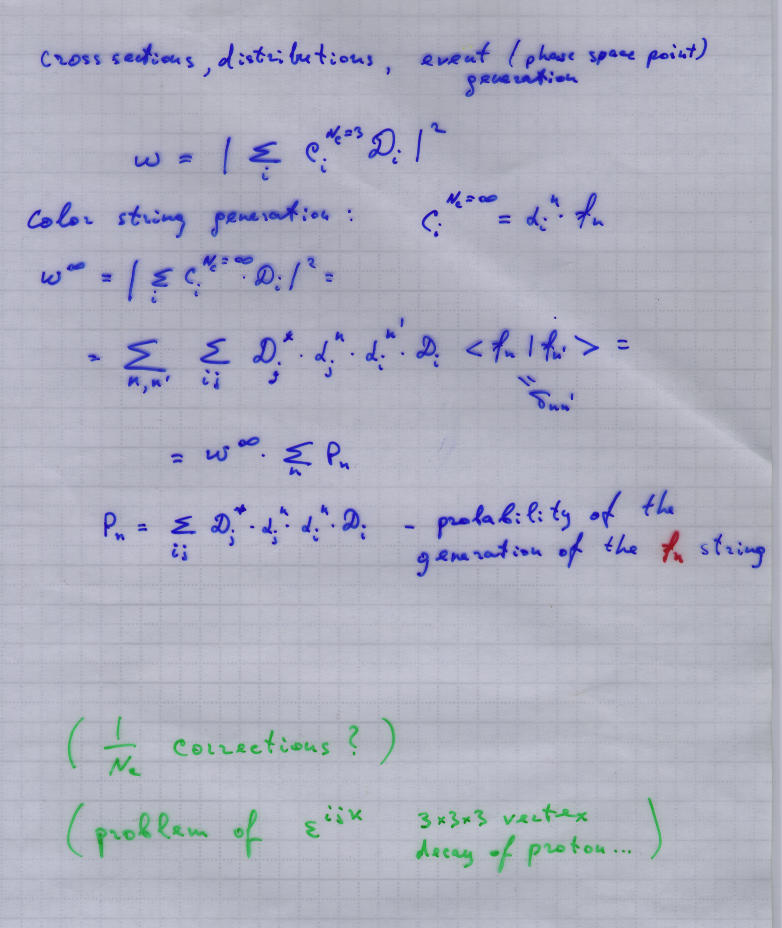 cross sections, distributions, event (phase space point)
generation
w = | Σ_i C_i^{N_c=3} D_i |^2
Color string generation: C_i^{N_c=∞} = α_i^n · f_n
w^∞ = | Σ_i C_i^{N_c=∞} · D_i |^2 =
= Σ_{n,n'} Σ_{ij} D_j^* · α_j^n · α_i^{n'} · D_i <f_n | f_{n'}> =
= δ_{nn'}
= w^∞ · Σ_n P_n
P_n = Σ_{ij} D_j^* · α_j^n · α_i^n · D_i - probability of the
generation of the f_n string
( 1/N_c corrections? )
( problem of ε^{ijk} 3×3×3 vertex
decay of proton... )